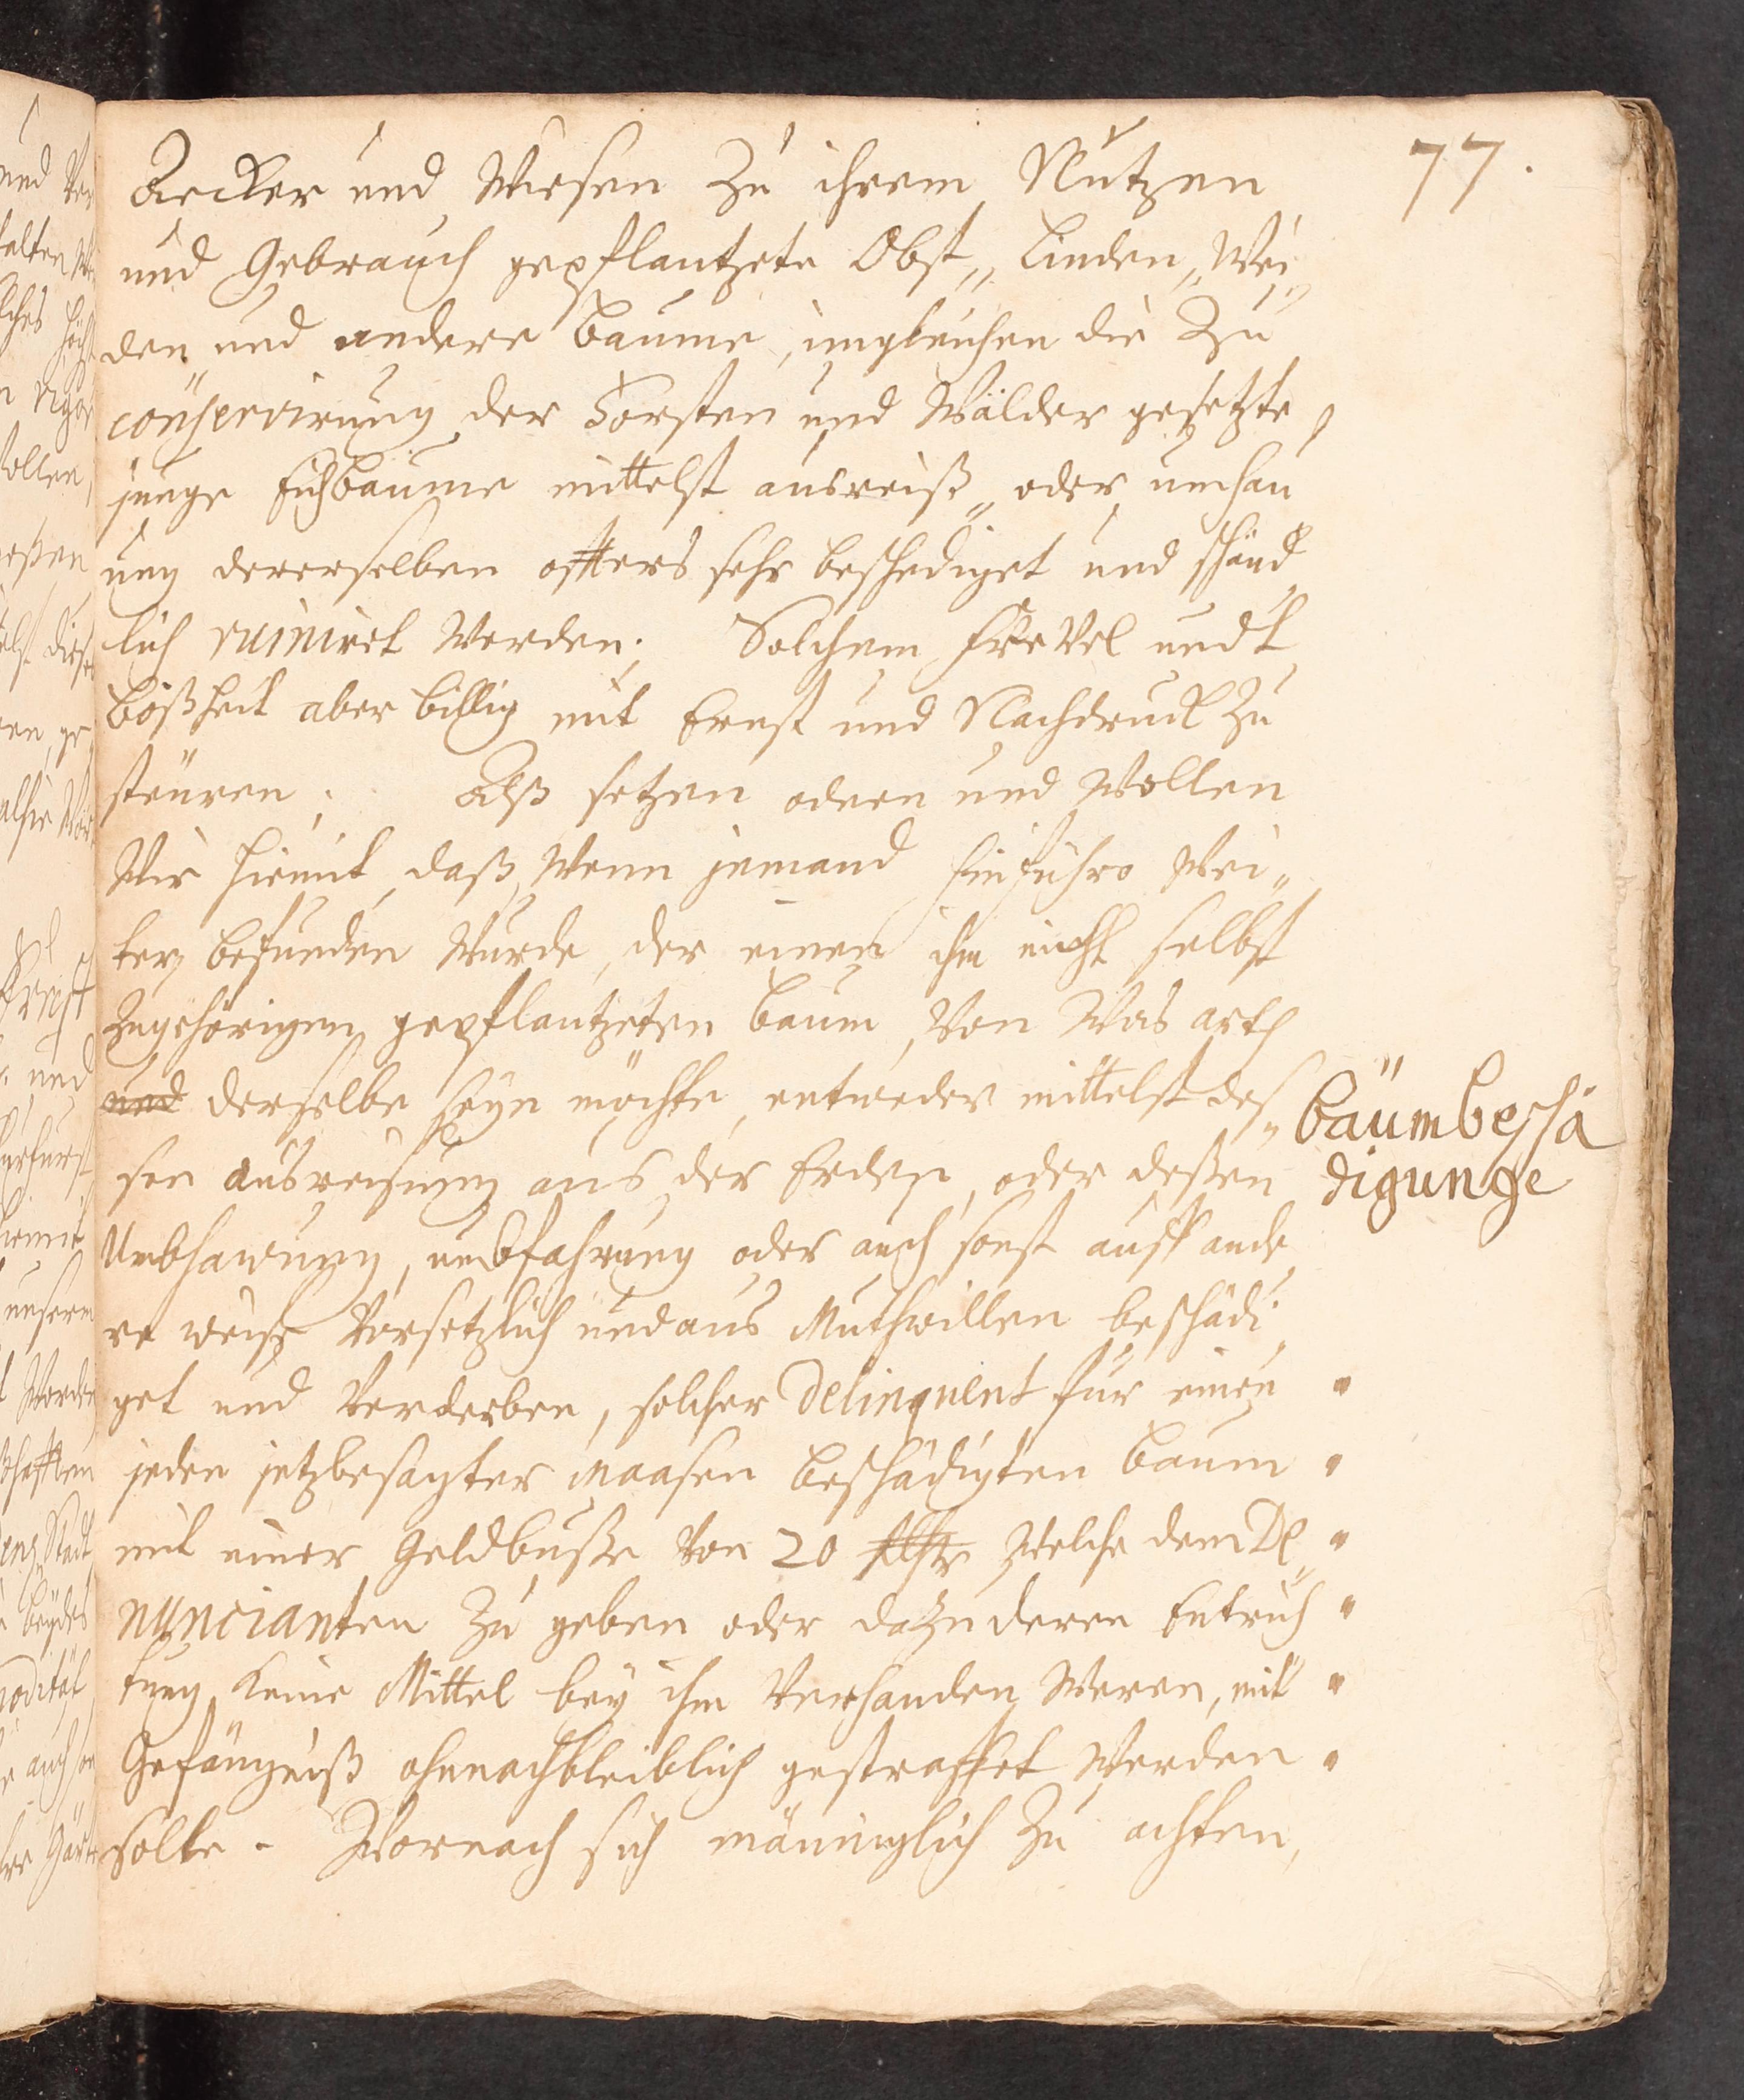 77.
Aecker und Wiesen zu ihrem Nutzen
und Gebrauch gepflantzete Obst„ Linden„ Wei„
den„ und andere Baume, imgleichen die Zu
conservirung der Forsten und Wälder gesetzte,
junge Eichbäume mittelst ausreiß„ oder umhau
ung dererselben offters sehr beschediget und schänd„
lich ruiniret werden. Solchem Frevel undt
Boßheit aber billig mit Ernst und Nachdruck zu
steuren; Alß setzen ordnen und wollen
Wir hiemit, daß, wenn jemand hinführo wei„
ter befunden wurde, der einen ihm nicht selbst
zugehörigen gepflantzeten Baum, von was arth
und derselbe seyn möchte, entweder mittelst des„
sen ausreisung aus der Erden, oder deßen
Umbhawung, umbfahrung oder auch sonst auff ande„
re weise vorsetzlich und aus Muthwillen beschädi„
get und Verderben, solcher Delinquent für einen
jeden jetzbesagter maasen beschädigten Baum
mit einer Geldbuße von 20 welche dem De„
nuncianten zu geben oder dazu deren Entrich
tung keine Mittel bey ihm Verhanden weren, mit
Gefängniß ohnnachbleiblich gestraffet werden
solte. Wornach sich männiglich zu achten,
Bäumbeschä
digunge